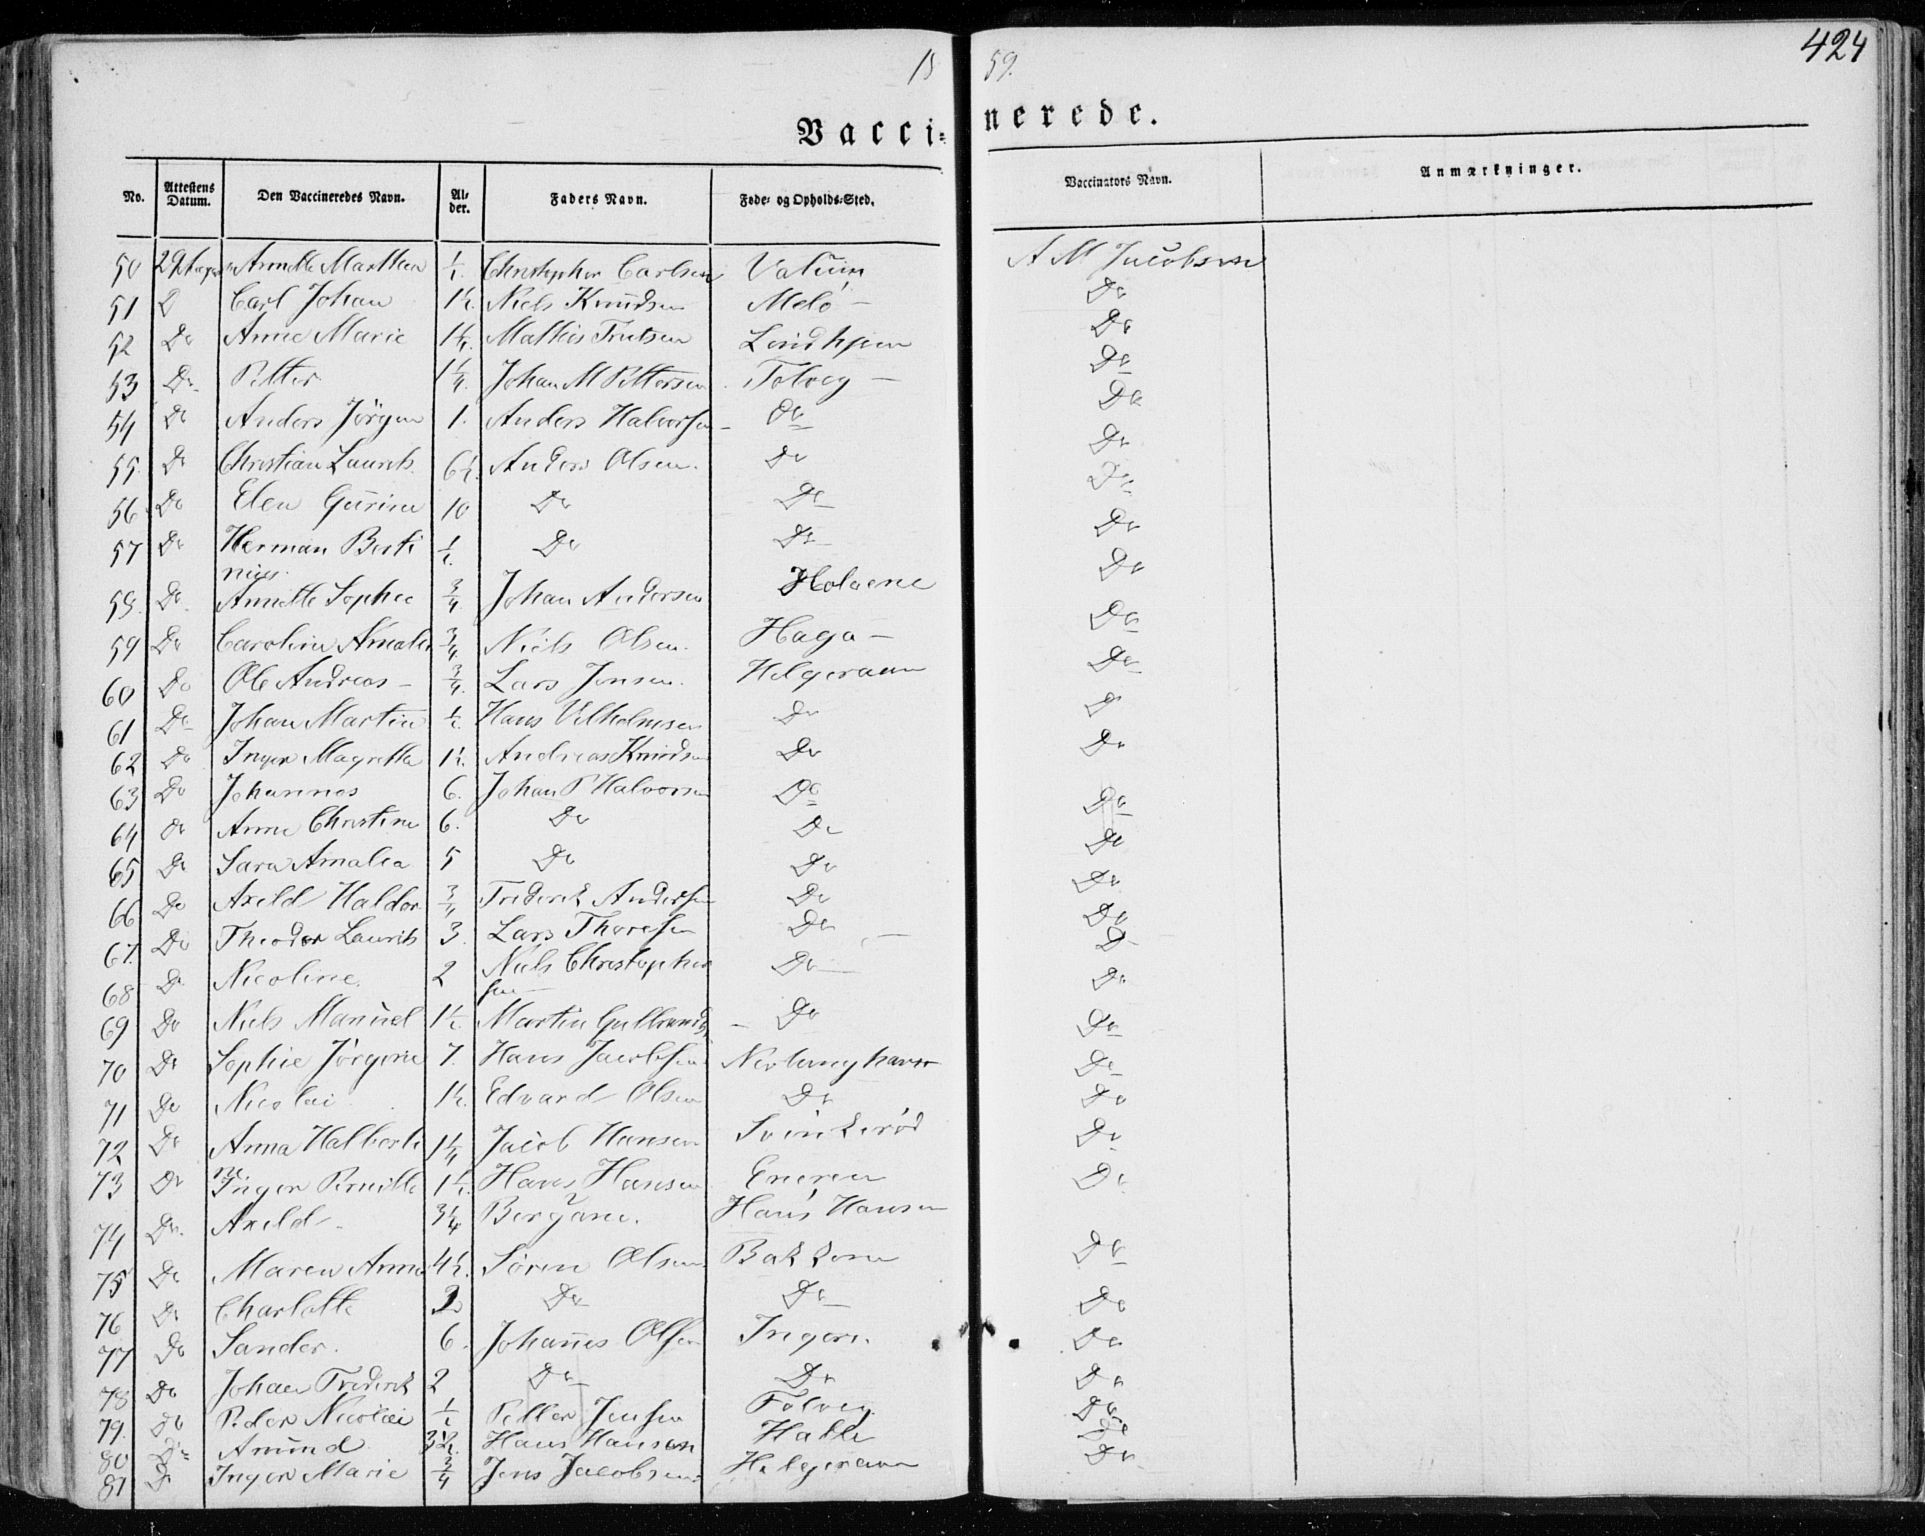 18 59.
424
Vacci= nerede.
No. Attestens Datum. Den Vaccineredes Navn. Al=der. Faders Navn. Føde= og Opholds=Sted. Vaccinators Navn. Anmærkninger.
50 29 Annette Marthea 1/2 Christopher Carlsen Valüim A M Jacobsen
51 D Carl Johan 1½. Niels Knudsen Melö – Do
52 Do Anne Marie 1¼. Mathis Lindhjem Do
53 Do Petter 1¼. Johan M Pettersen Tolveg – Do
54 Do Anders Jörgen 1. Anders Halvorsen – Do Do
55 Do Christian Laurits 6½. Anders Olsen. Do Do
56 Do Elen Gurine 10 Do Do Do
57 Do Herman Berti 1/2. Do Do Do
nius.
58. Do Annette Sophie 3/4 Johan Andersen Holaene Do
59 Do Caroline Amalie 3/4 Niels Olsen. Haga – Do
60 Do Ole Andreas – 3/4. Lars Jensen. Helgeraaen Do
61 Do Johan Martin 1/2. Hans Vilholmsen Do D
62 Do Inger Magretha 1½. Andreas Knudsen Do Do
63 Do Johannes 6. Johan P Halvorsen Do Do
64 Do Anne Christine 6. Do Do Do
65 Do Sara Amalia 5 Do Do Do
66 Do Axeld Haldor 3/4 Frederik Andersen Do Do
67. Do Theodor Laurits 3. Lars Thoresen Do – D
68 Do Nicoline. 2 Niels Christopher Do Do
sen –
69 Do Niels Manuel 1½ Martin Gulbrands – Do Do
70 Do Sophie Jörgine 7. Hans Jacobsen Nevlunghavn Do
71 Do Nicolai 1½. Edvard Olsen Do Do
72 Do Anna Halberti 1¼ Jacob Hansen Do
ne
73 Do Inger Pernille 1½. Hans Hansen Eneren Do
74 Do Axeld 3¼ Bergane. Hans Hansen
75 Do Maren Anne 4½. Sören Olsen Bakkene Do
76 Do Charlotte 2 Do Do Do
77 Do Sander. 6. Johannes Olsen Do
78 Do Johan Frederik 2 Do Do Do
79. Do Peder Nicolai 1/2 Petter Jensen Folveg. Do
80 Do Amund 3½. Hans Hansen Halle Do
81 D Inger Marie 3/4 Jens Jacobsen Helgeraaen Do